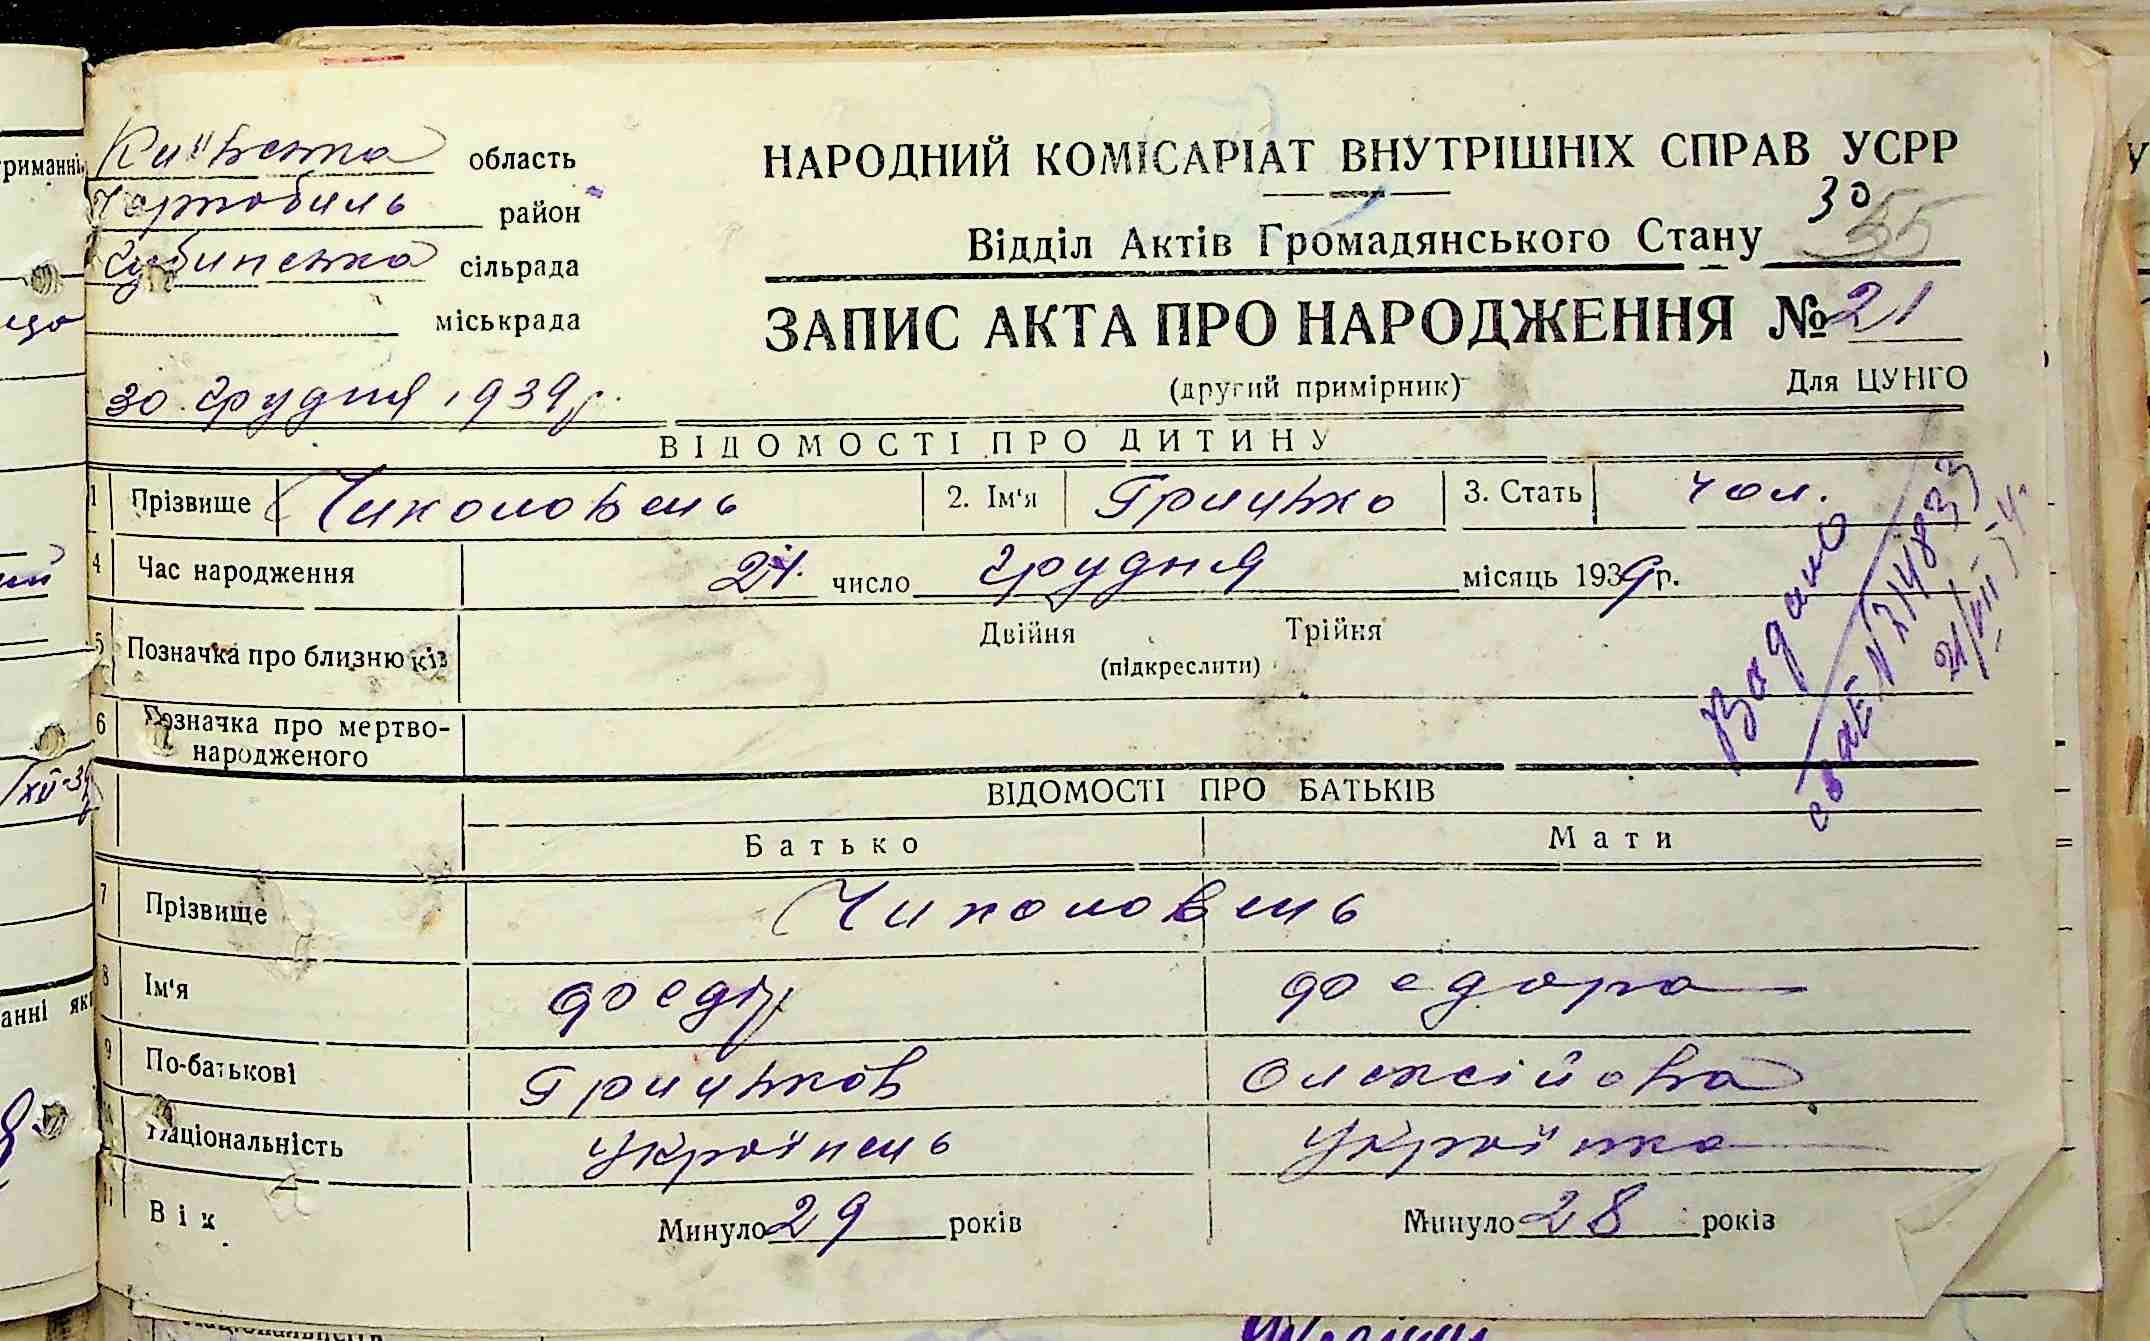 Київська область
Чорнобиль район
Губинська сільрада
міськрада
30 грудня 1939 р.
НАРОДНИЙ КОМІСАРІАТ ВНУТРІШНІХ СПРАВ УСРР
Відділ Актів Громадянського Стану
30
55
ЗАПИС АКТА ПРО НАРОДЖЕННЯ № 21
(другий примірник)
Для ЦУНГО
ВІДОМОСТІ ПРО ДИТИНУ
1 Прізвище Чиколовець 2. Ім'я Грицько 3. Стать чол.
4 Час народження 21. число грудня місяць 1939 р.
5 Позначка про близнюків Двійня Трійня
(підкреслити)
6 Позначка про мертво-
народженого
Видано
ВІДОМОСТІ ПРО БАТЬКІВ
Батько Мати
7 Прізвище Чиколовець
8 Ім'я Федір Федора
9 По-батькові Грицьков Олексійовна
Національність Українець Українка
11 Вік Минуло 29 років Минуло 28 років